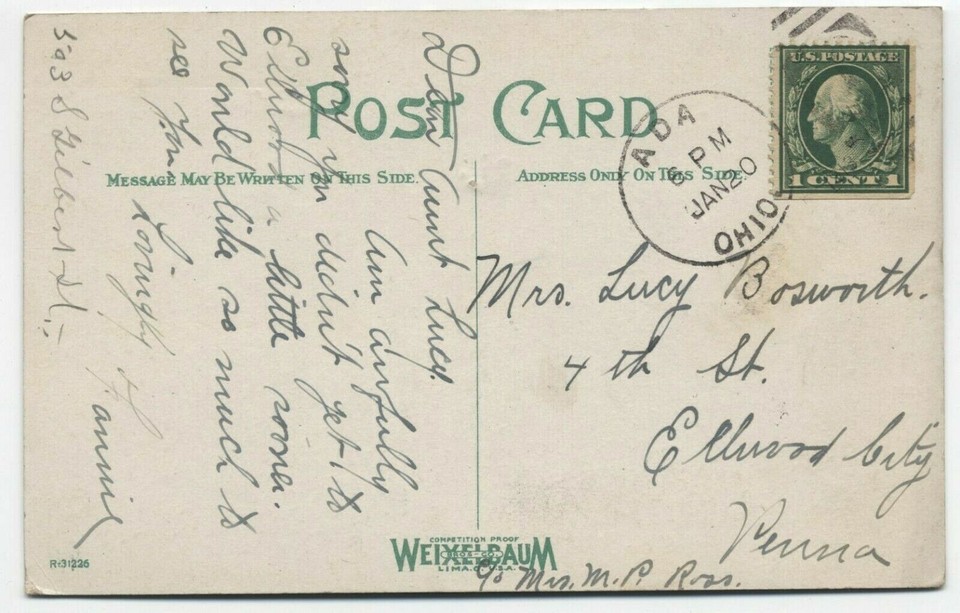 POST CARD
MESSAGE MAY BE WRITTEN ON THIS SIDE.
ADDRESS ONLY ON THIS SIDE.
U.S. POSTAGE
1 CENT 1
ADA
6 PM
JAN 20
OHIO
Dear Aunt Lucy.
Am awfully
sorry I'm didn't get to
Ellwood a little sooner.
Would like so much to
see you.
Lovingly
Fannie
593 S Gilbert St.,
Mrs. Lucy Bosworth.
4th St.
Ellwood City
Penna
c/o Mrs. M. P. Ross.
COMPETITION PROOF
WEIXELBAUM
BROS. CO.
LIMA, O. U.S.A.
R-31226